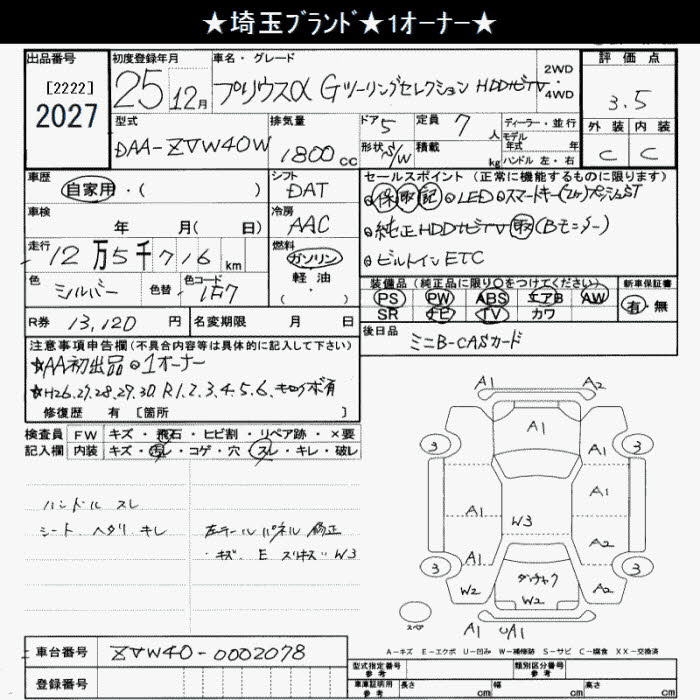 ★埼玉ブランド★1オーナー★
出品番号
[2222]
2027
初度登録年月
25年 12月
車名・グレード
プリウスα Gツーリングセレクション HDDナビTV
2WD
・
4WD
評価点
3.5
外装 内装
C C
型式
DAA-ZVW40W
排気量
1800cc
ドア 5
形状 S/W
定員 7人
積載 kg
ディーラー・並行
モデル
年式 年
ハンドル 左・右
車歴
自家用・( )
シフト
DAT
車検
年 月( 日)
冷房
AAC
走行
12万5千716km
燃料
ガソリン
軽油
( ・ )
色
シルバー
色替
色カラーコード
1F7
R券 13,120円
名変期限 月 日
セールスポイント(正常に機能するものに限ります)
保 取 記 ⊙LED⊙スマートキー(2ケ)プッシュST
⊙純正HDDナビTV取(Bモニター)
⊙ビルトインETC
装備品(純正品に限り○をつけてください)
PS PW ABS エアB AW
SR ナビ TV カワ
新車保証書
有・無
後日品
ミニB-CASカード
注意事項申告欄(不具合内容等は具体的に記入して下さい)
☆AA初出品⊙1オーナー
☆H26.27.28.29.30.R1.2.3.4.5.6.キロクボ有
修復歴 有 [箇所 ]
検査員記入欄
FW キズ・飛石・ヒビ割・リペア跡・×要
内装 キズ・汚レ・コゲ・穴・スレ・キレ・破レ
ハンドル スレ
シート ヘタリ キレ
左テールパネル 修正
・キズ E スリキズ W3
A1 A2
A1
3 3
A1 A1
A1 W3 A1
A1 A2
3 3
W2 ダンチャク W2 A2
スペア
A1 UA1
A-キズ E-エクボ U-凹み W-補修跡 S-サビ C-腐食 XX-交換済
車台番号 ZVW40-0002078
登録番号
型式指定番号
参考
類別区分番号
参考
車庫証明用
参考
長さ cm 幅 cm 高さ cm